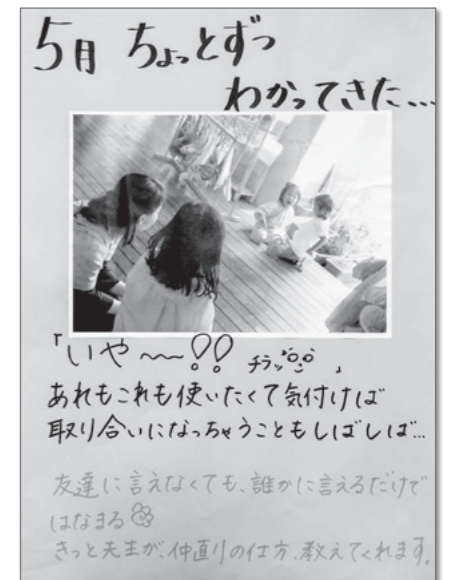 5月 ちょっとずつ
わかってきた…
「いや〜〜!! チラッ 」
あれもこれも使いたくて気付けば
取り合いになっちゃうこともしばしば…
友達に言えなくても、誰かに言えるだけで
はなまる
きっと先生が、仲直りの仕方、教えてくれます。